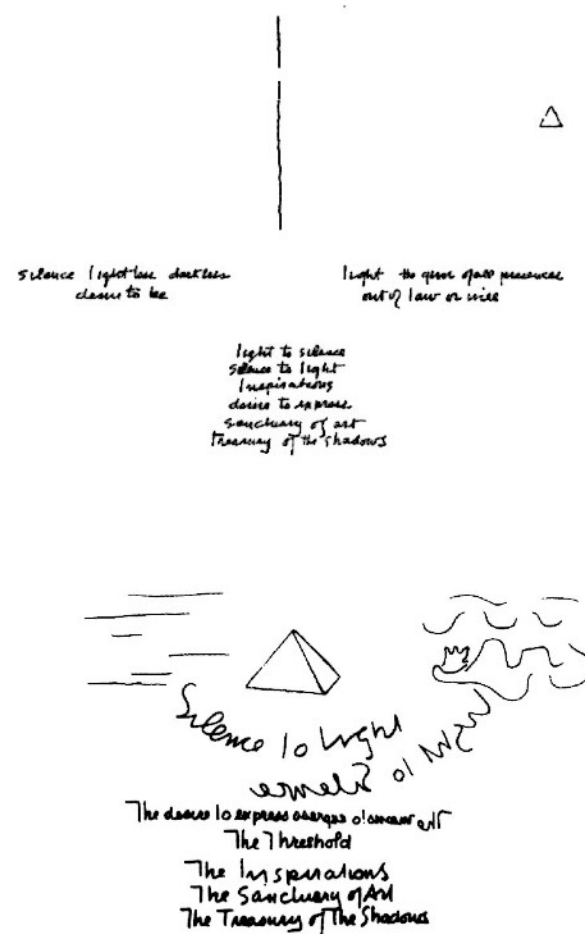 silence lightless darkless
desire to be
light the giver of all presences
out of law or
light to silence
silence to light
Inspirations
desire to express
sanctuary of art
treasury of the shadows
Silence to Light
Light to Silence
The desire to express
The Threshold
The Inspirations
The Sanctuary of Art
The Treasury of The Shadows